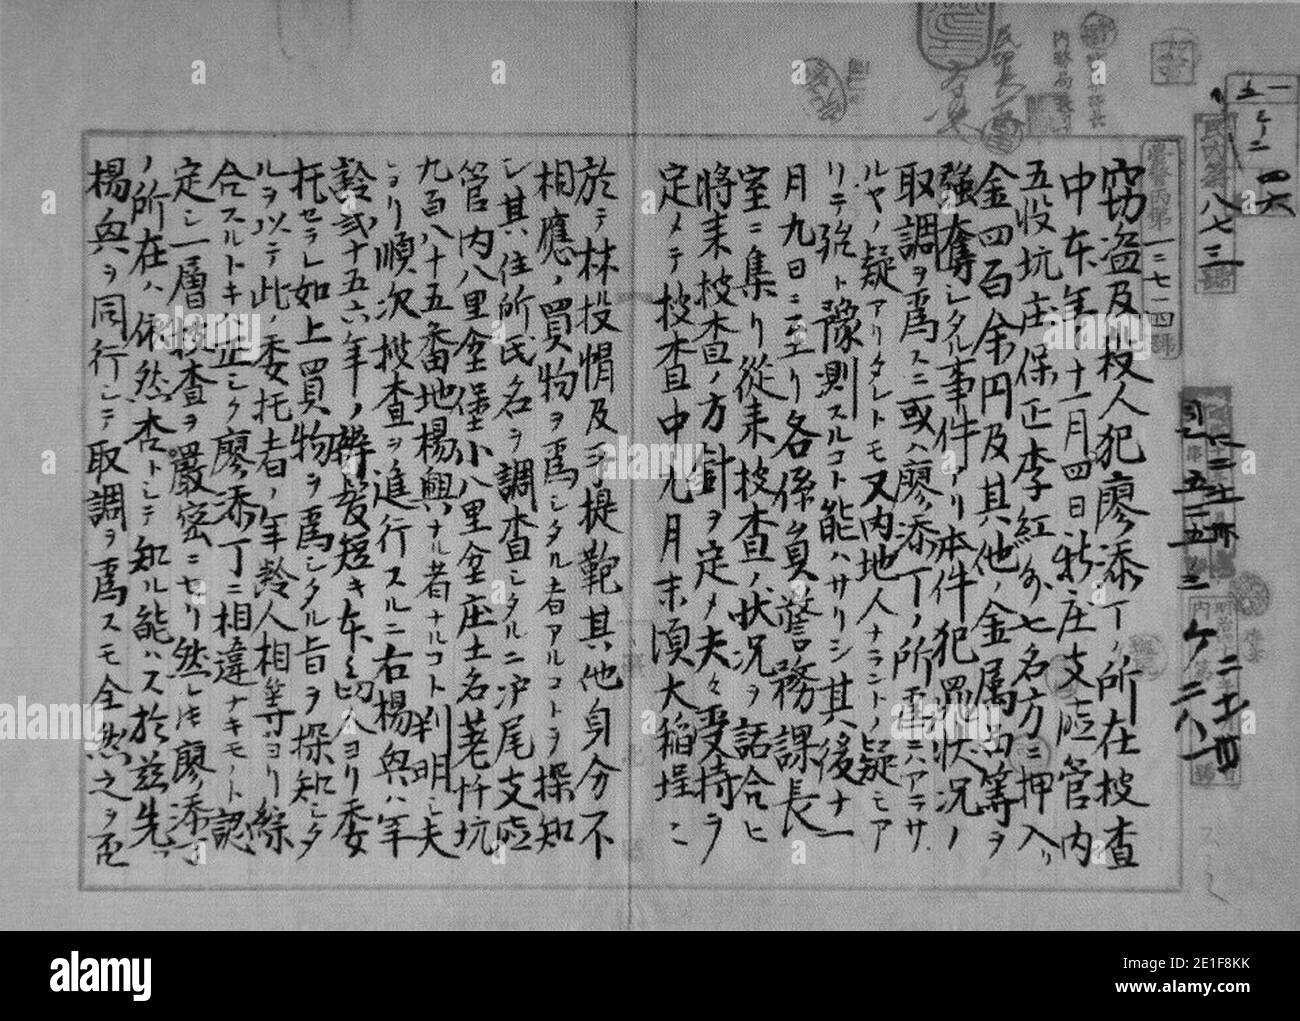 窃盗及殺人犯廖添丁ノ所在捜査
中本年ノ十一月四日新庄支廳管内
五股坑庄保正李紅外七名方ニ押入リ
金四百余円及其他ノ金属品等ヲ
強奪シタル事件アリ本件犯罪状況ノ
取調ヲ爲スニ或ハ廖添丁ノ所爲ニハアラサ
ルヤノ疑アリタレトモ又内地人ナラントノ疑モア
リテ強ト豫測スルコト能ハサリシ其後十一
月九日ニ至リ各係員警務課長
室ニ集リ從来捜査ノ状況ヲ話合ヒ
将来捜査ノ方針ヲ定メ夫々受持ヲ
定メテ捜査中九月末頃大稲埕ニ
於テ林投帽及ヒ提鞄其他身分不
相應ノ買物ヲ爲シタル者アルコトヲ探知
シ其住所氏名ヲ調査シタルニ滬尾支廳
管内八里坌堡小八里坌庄土名荖阡坑
九百八十五番地楊興ナル者ナルコト判明シ夫
ヨリ順次捜査ヲ進行スルニ右楊興ハ年
齢貳十五六年ノ辮髪短キ本島人ヨリ委
托セラレ如上買物ヲ爲シタル旨ヲ探知シタ
ルヲ以テ此ノ委托者ノ年齢人相等ヨリ綜
合スルトキハ正シク廖添丁ニ相違ナキモノト認
定シ一層捜査ヲ嚴密ニセリ然レ圧廖添丁
ノ所在ハ依然杳トシテ知ル能ハス於茲先ツ
楊興ヲ同行シテ取調ヲ爲スモ全然之ヲ否
一二七一四號
八七三
内務局長
alamy
Image ID: 2E1F8KK
www.alamy.com